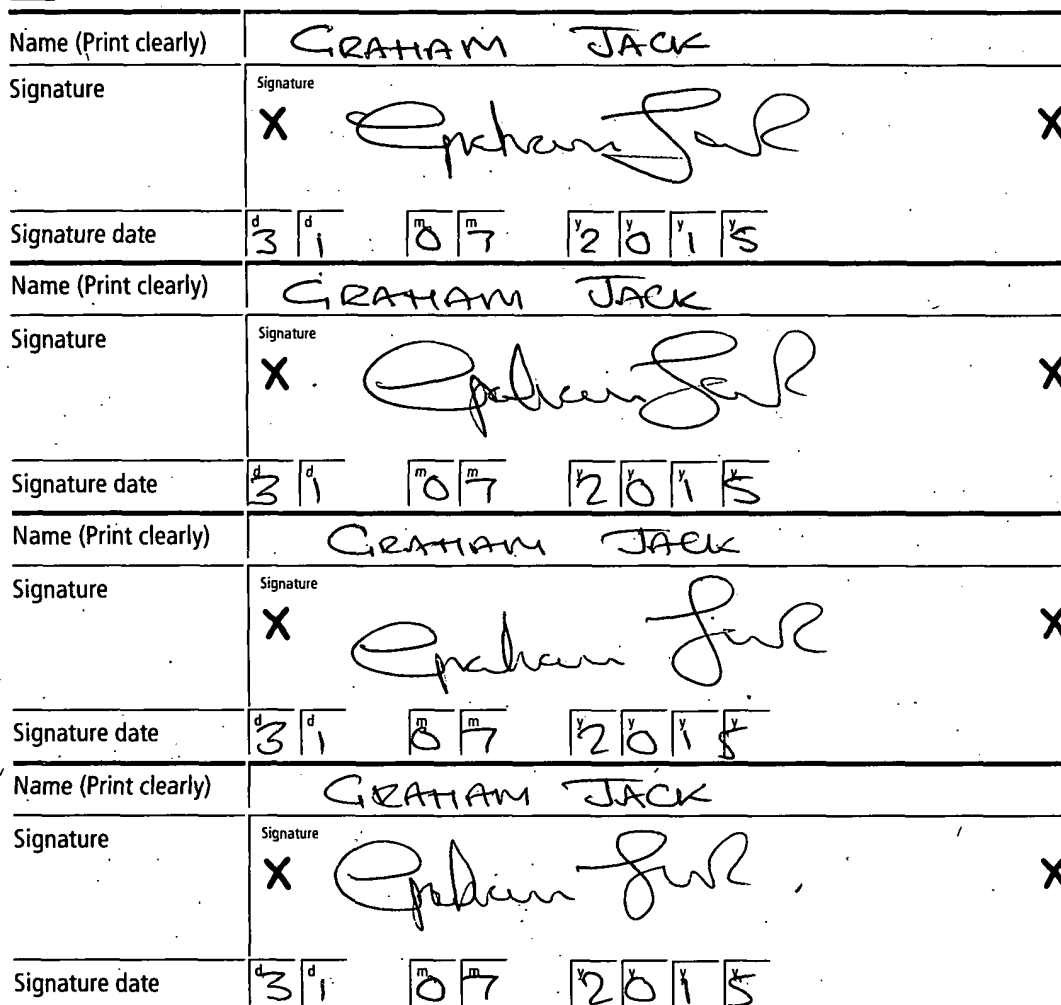 Name (Print clearly) GRAHAM JACK
Signature Signature
X Graham Jack X
Signature date d3 d1 m0 m7 y2 y0 y1 y5
Name (Print clearly) GRAHAM JACK
Signature Signature
X Graham Jack X
Signature date d3 d1 m0 m7 y2 y0 y1 y5
Name (Print clearly) GRAHAM JACK
Signature Signature
X Graham Jack X
Signature date d3 d1 m0 m7 y2 y0 y1 y5
Name (Print clearly) GRAHAM JACK
Signature Signature
X Graham Jack X
Signature date d3 d1 m0 m7 y2 y0 y1 y5